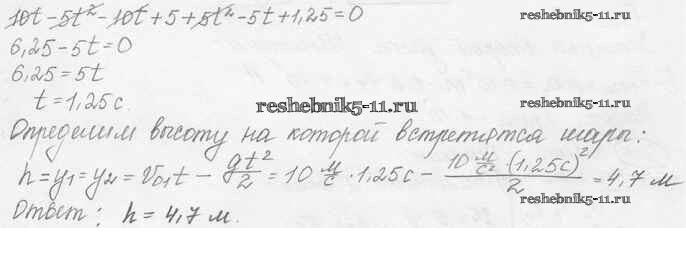 reshebnik5-11.ru
10t - 5t² - 10t + 5 + 5t² - 5t + 1,25 = 0
6,25 - 5t = 0
6,25 = 5t
t = 1,25 с.
reshebnik5-11.ru
reshebnik5-11.ru
Определим высоту на которой встретятся шары:
h = y₁ = y₂ = V₀₁t - gt²/2 = 10 м/с · 1,25с - 10 м/с² · (1,25с)²/2 = 4,7 м
Ответ: h = 4,7 м.
reshebnik5-11.ru